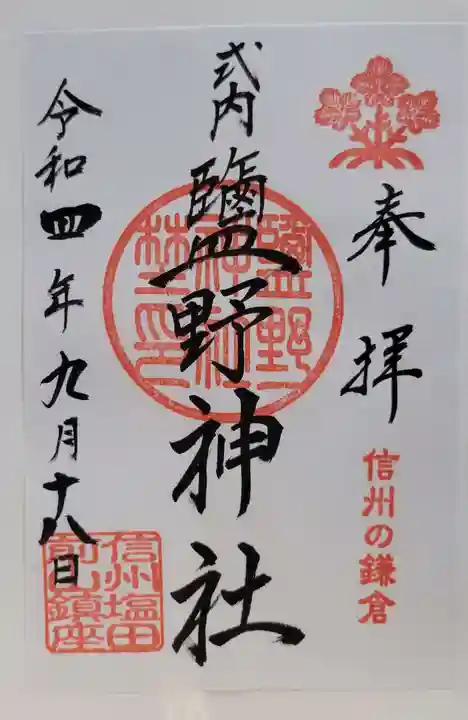 奉拝
信州の鎌倉
式内
鹽野神社
鹽野神社禁之印
令和四年九月十八日
信州塩田
前山鎮座